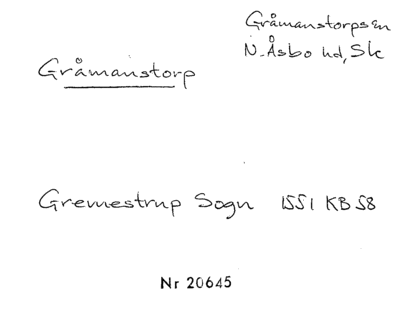 Gråmanstorps sn
N. Åsbo hd, Sk
Gråmanstorp
Gremestrup Sogn 1551 KB 58
Nr 20645